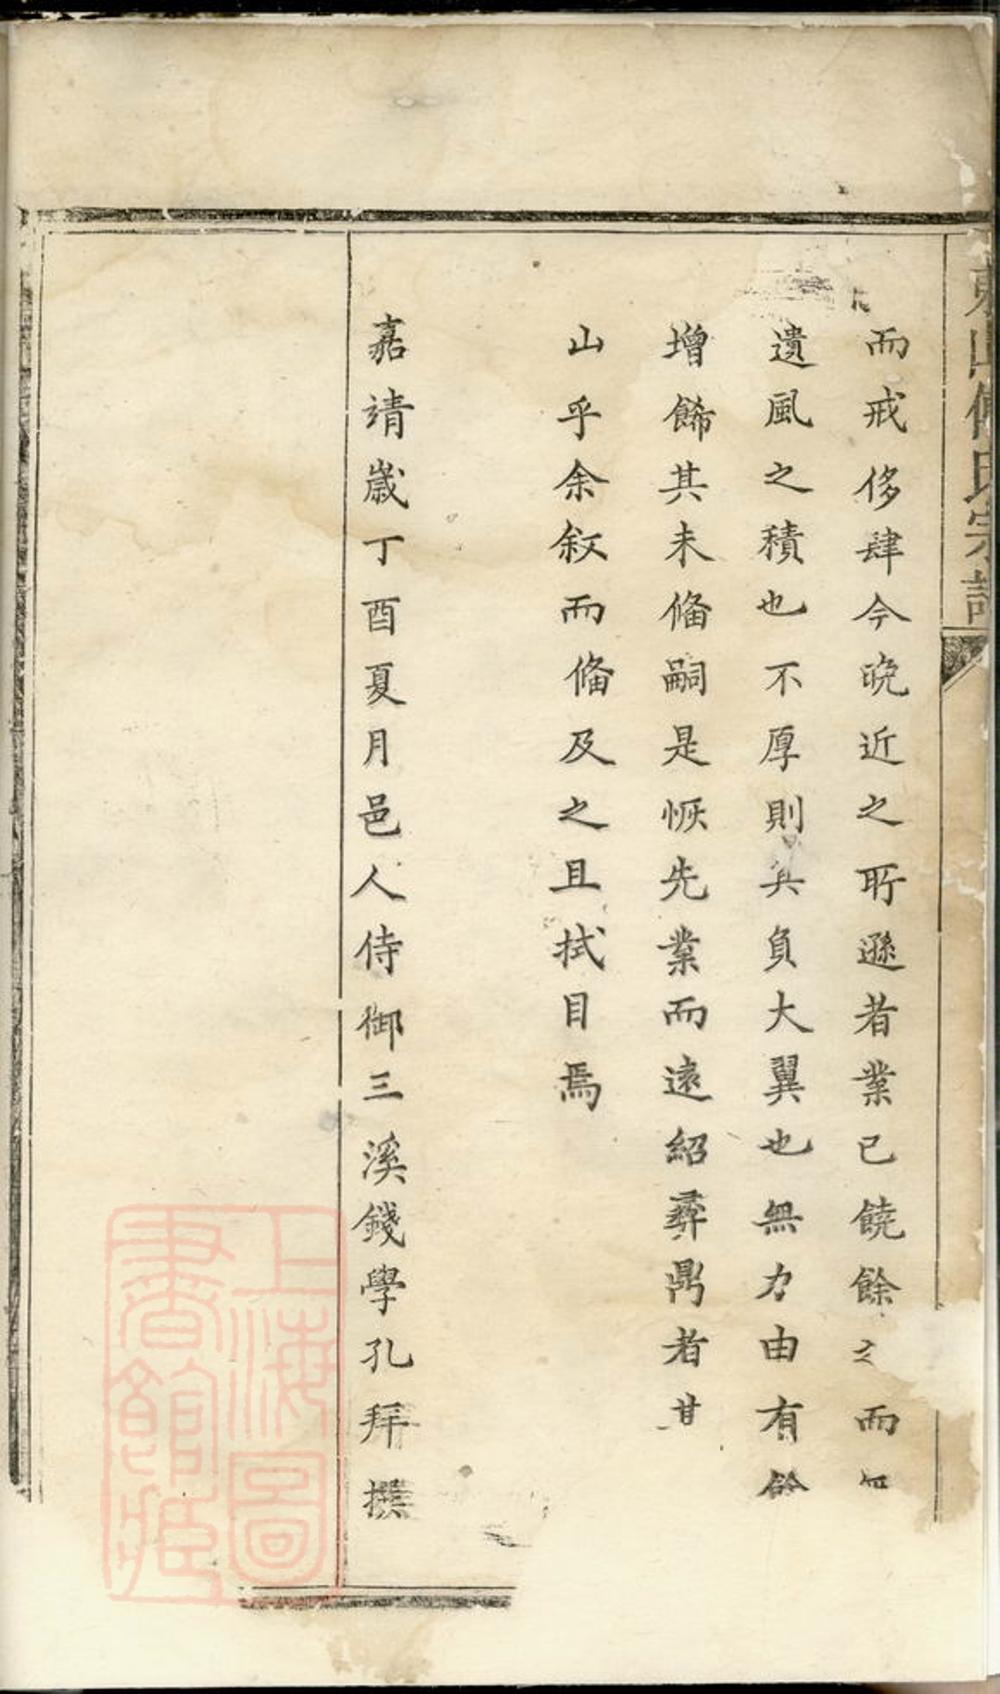 而戒侈肆今晩近之所遜者業已饒餘之而無
遺風之積也不厚則其負大翼也無力由有餘
增餙其未俻嗣是恢先業而遠紹彝鼎者其
山乎余叙而俻及之且拭目焉
嘉靖歲丁酉夏月邑人侍御三溪錢學孔拜撰
東山
氏宗譜
上海圖
書館藏